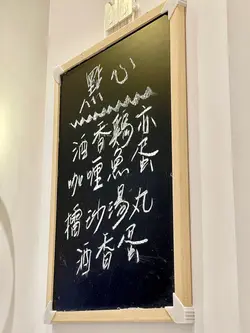 點心
酒香鷄亦
咖喱魚蛋
擂沙湯丸
酒香蛋